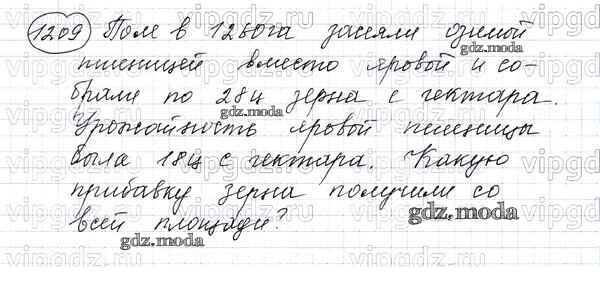 1209 Поле в 1250га засеяли озимой
пшеницей вместо яровой и со-
брали по 28ц зерна с гектара.
Урожайность яровой пшеницы
была 18ц с гектара. Какую
прибавку зерна получили со
всей площади?
gdz.moda
gdz.moda
gdz.moda
gdz.moda